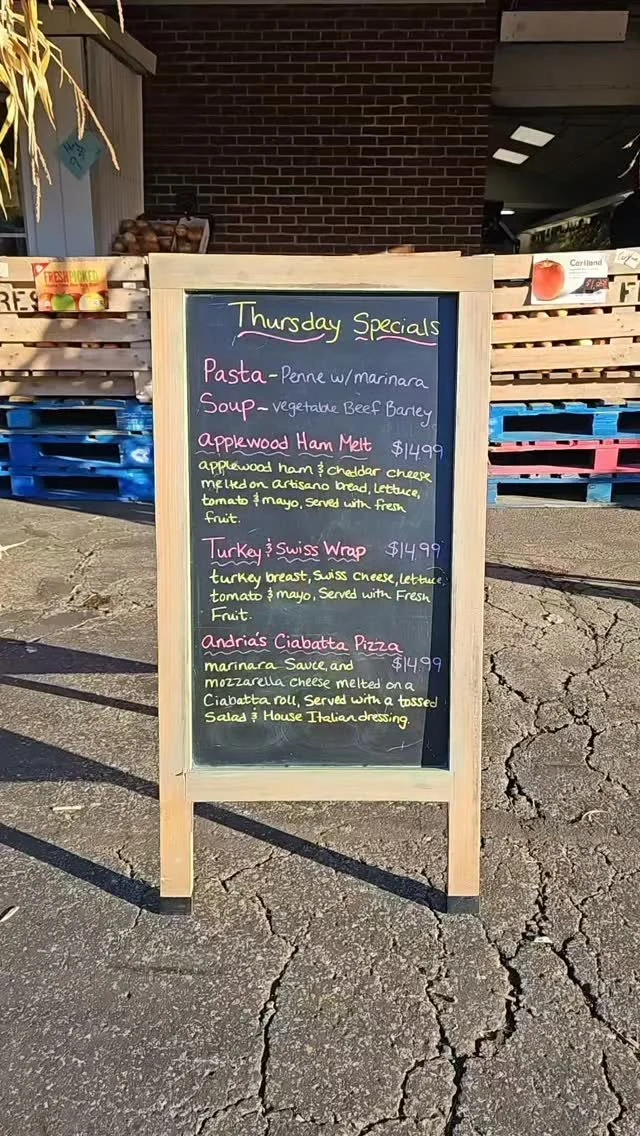 FRESH PICKED
Cortland
RES
F
Thursday Specials
Pasta - Penne w/marinara
Soup - vegetable Beef Barley
Applewood Ham Melt $14.99
applewood ham & cheddar cheese
melted on artisano bread, lettuce,
tomato & mayo, Served with fresh
fruit.
Turkey & Swiss Wrap $14.99
turkey breast, Swiss cheese, lettuce,
tomato & mayo, Served with Fresh
Fruit.
Andria's Ciabatta Pizza
marinara Sauce, and $14.99
mozzarella cheese melted on a
Ciabatta roll, Served with a tossed
Salad & House Italian dressing.